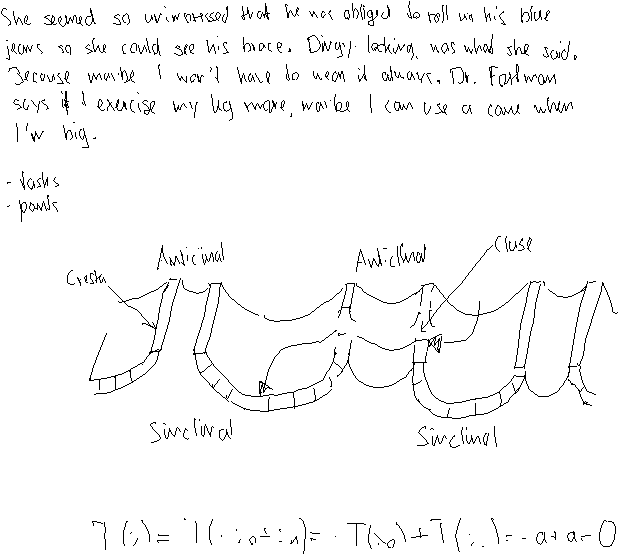 She seemed so unimpressed that he was obliged to roll up his blue
jeans so she could see his brace. Dingy-looking, was what she said.
Because maybe I won't have to wear it always. Dr. Fortman
says if I exercise my leg more, maybe I can use a cane when
I'm big.
- tasks
Anticlinal Anticlinal Cluse
Cresta
Sinclinal Sinclinal